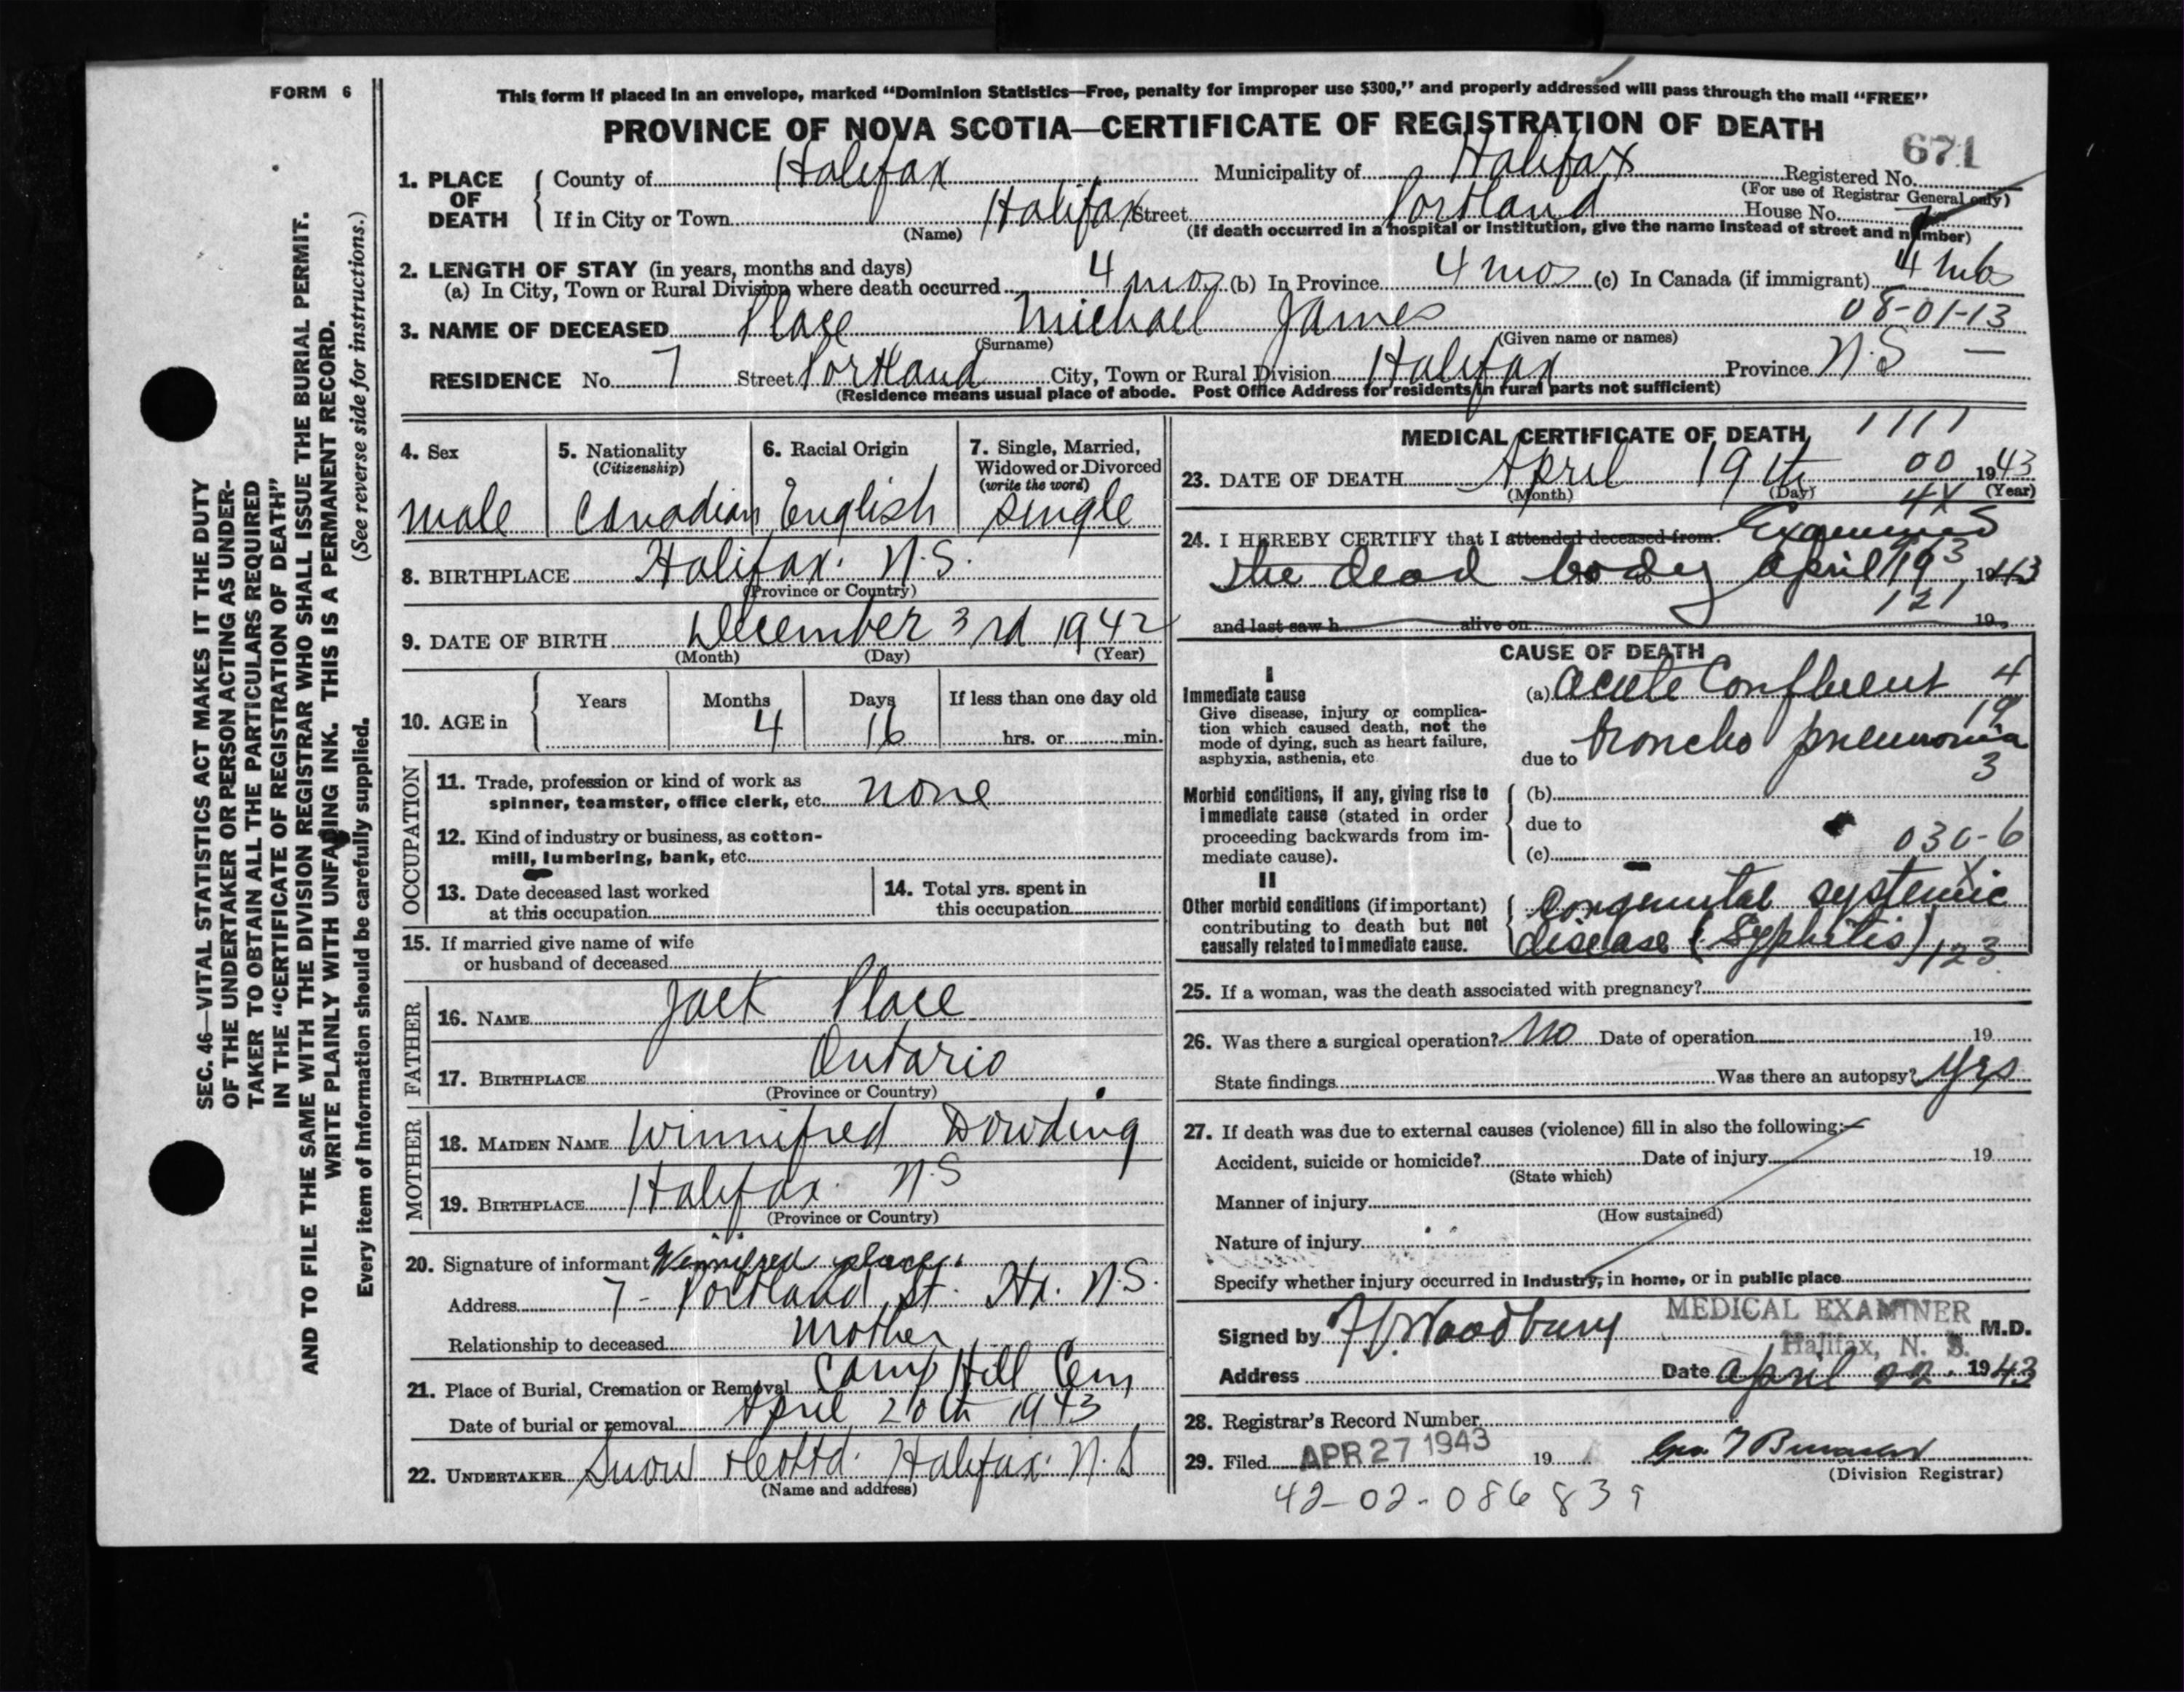 FORM 6
This form if placed in an envelope, marked “Dominion Statistics—Free, penalty for improper use $300,” and properly addressed will pass through the mail “FREE”
PROVINCE OF NOVA SCOTIA—CERTIFICATE OF REGISTRATION OF DEATH
671
1. PLACE OF DEATH
County of Halifax Municipality of Halifax Registered No.
(For use of Registrar General only)
If in City or Town Halifax Street Portland House No. 7
(Name) (If death occurred in a hospital or institution, give the name instead of street and number)
2. LENGTH OF STAY (in years, months and days)
(a) In City, Town or Rural Division where death occurred 4 mos (b) In Province 4 mos (c) In Canada (if immigrant) 4 mos
08-01-13
3. NAME OF DECEASED Place Michael James
(Surname) (Given name or names)
RESIDENCE No. 7 Street Portland City, Town or Rural Division Halifax Province N.S —
(Residence means usual place of abode. Post Office Address for residents in rural parts not sufficient)
4. Sex
male
5. Nationality
(Citizenship)
Canadian
6. Racial Origin
English
7. Single, Married,
Widowed or Divorced
(write the word)
single
8. BIRTHPLACE Halifax. N.S.
(Province or Country)
9. DATE OF BIRTH December 3rd 1942
(Month) (Day) (Year)
10. AGE in
Years
Months 4
Days 16
If less than one day old
hrs. or min.
OCCUPATION
11. Trade, profession or kind of work as
spinner, teamster, office clerk, etc. none
12. Kind of industry or business, as cotton-
mill, lumbering, bank, etc.
13. Date deceased last worked
at this occupation
14. Total yrs. spent in
this occupation
15. If married give name of wife
or husband of deceased
FATHER
16. NAME Jack Place
17. BIRTHPLACE Ontario
(Province or Country)
MOTHER
18. MAIDEN NAME Winnifred Dowding
19. BIRTHPLACE Halifax. N.S
(Province or Country)
20. Signature of informant Winnifred place.
Address 7 - Portland St. Hx. N.S.
Relationship to deceased mother
21. Place of Burial, Cremation or Removal Camp Hill Cem
Date of burial or removal April 20th 1943
22. UNDERTAKER Snow & Co Ltd. Halifax. N.S
(Name and address)
MEDICAL CERTIFICATE OF DEATH
1111
23. DATE OF DEATH April 19th 00 1943
(Month) (Day) (Year)
4X
24. I HEREBY CERTIFY that I attended deceased from: Examined
the dead body April 19 1943
3
121
and last saw h alive on 19
CAUSE OF DEATH
I
Immediate cause
Give disease, injury or complica-
tion which caused death, not the
mode of dying, such as heart failure,
asphyxia, asthenia, etc
(a) Acute Confluent 4
19
due to broncho pneumonia
3
Morbid conditions, if any, giving rise to
immediate cause (stated in order
proceeding backwards from im-
mediate cause).
(b)
due to
(c) 030-6
X
II
Other morbid conditions (if important)
contributing to death but not
causally related to immediate cause.
Congenital systemic
disease (Syphilis) 123
25. If a woman, was the death associated with pregnancy?
26. Was there a surgical operation? No Date of operation 19
State findings Was there an autopsy? yes
27. If death was due to external causes (violence) fill in also the following:—
Accident, suicide or homicide? Date of injury 19
(State which)
Manner of injury
(How sustained)
Nature of injury
Specify whether injury occurred in Industry, in home, or in public place
Signed by Woodbury MEDICAL EXAMINER M.D.
Halifax, N. S.
Address Date April 22. 1943
28. Registrar’s Record Number
29. Filed APR 27 1943 19
(Division Registrar)
42-02-086839
SEC. 46—VITAL STATISTICS ACT MAKES IT THE DUTY
OF THE UNDERTAKER OR PERSON ACTING AS UNDER-
TAKER TO OBTAIN ALL THE PARTICULARS REQUIRED
IN THE “CERTIFICATE OF REGISTRATION OF DEATH”
AND TO FILE THE SAME WITH THE DIVISION REGISTRAR WHO SHALL ISSUE THE BURIAL PERMIT.
WRITE PLAINLY WITH UNFADING INK. THIS IS A PERMANENT RECORD.
Every item of information should be carefully supplied. (See reverse side for instructions.)